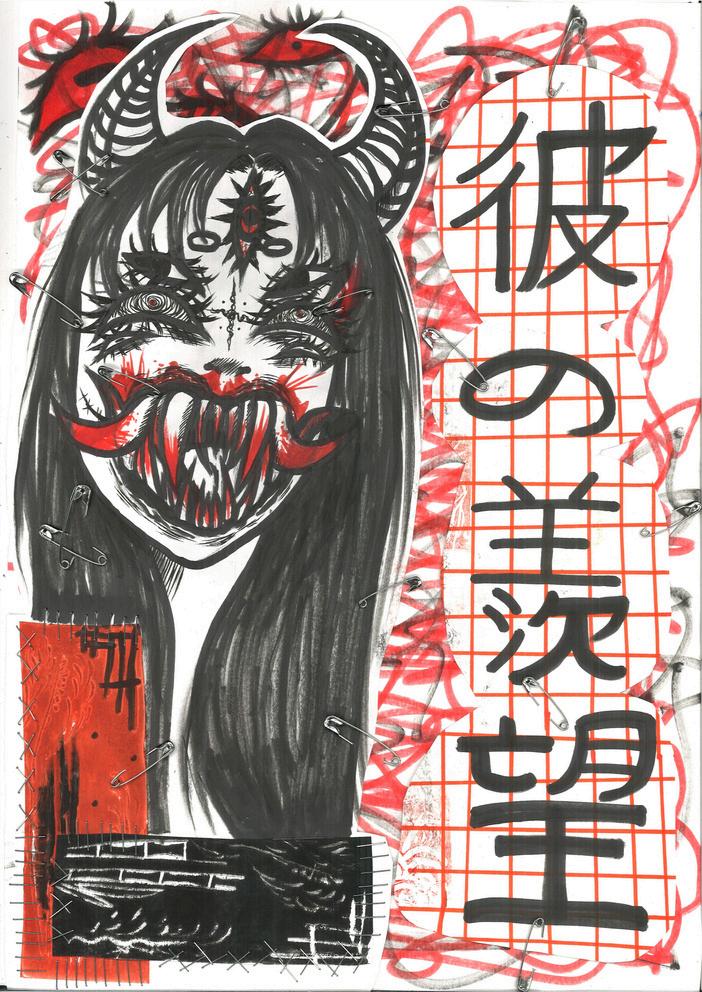 彼の羨望